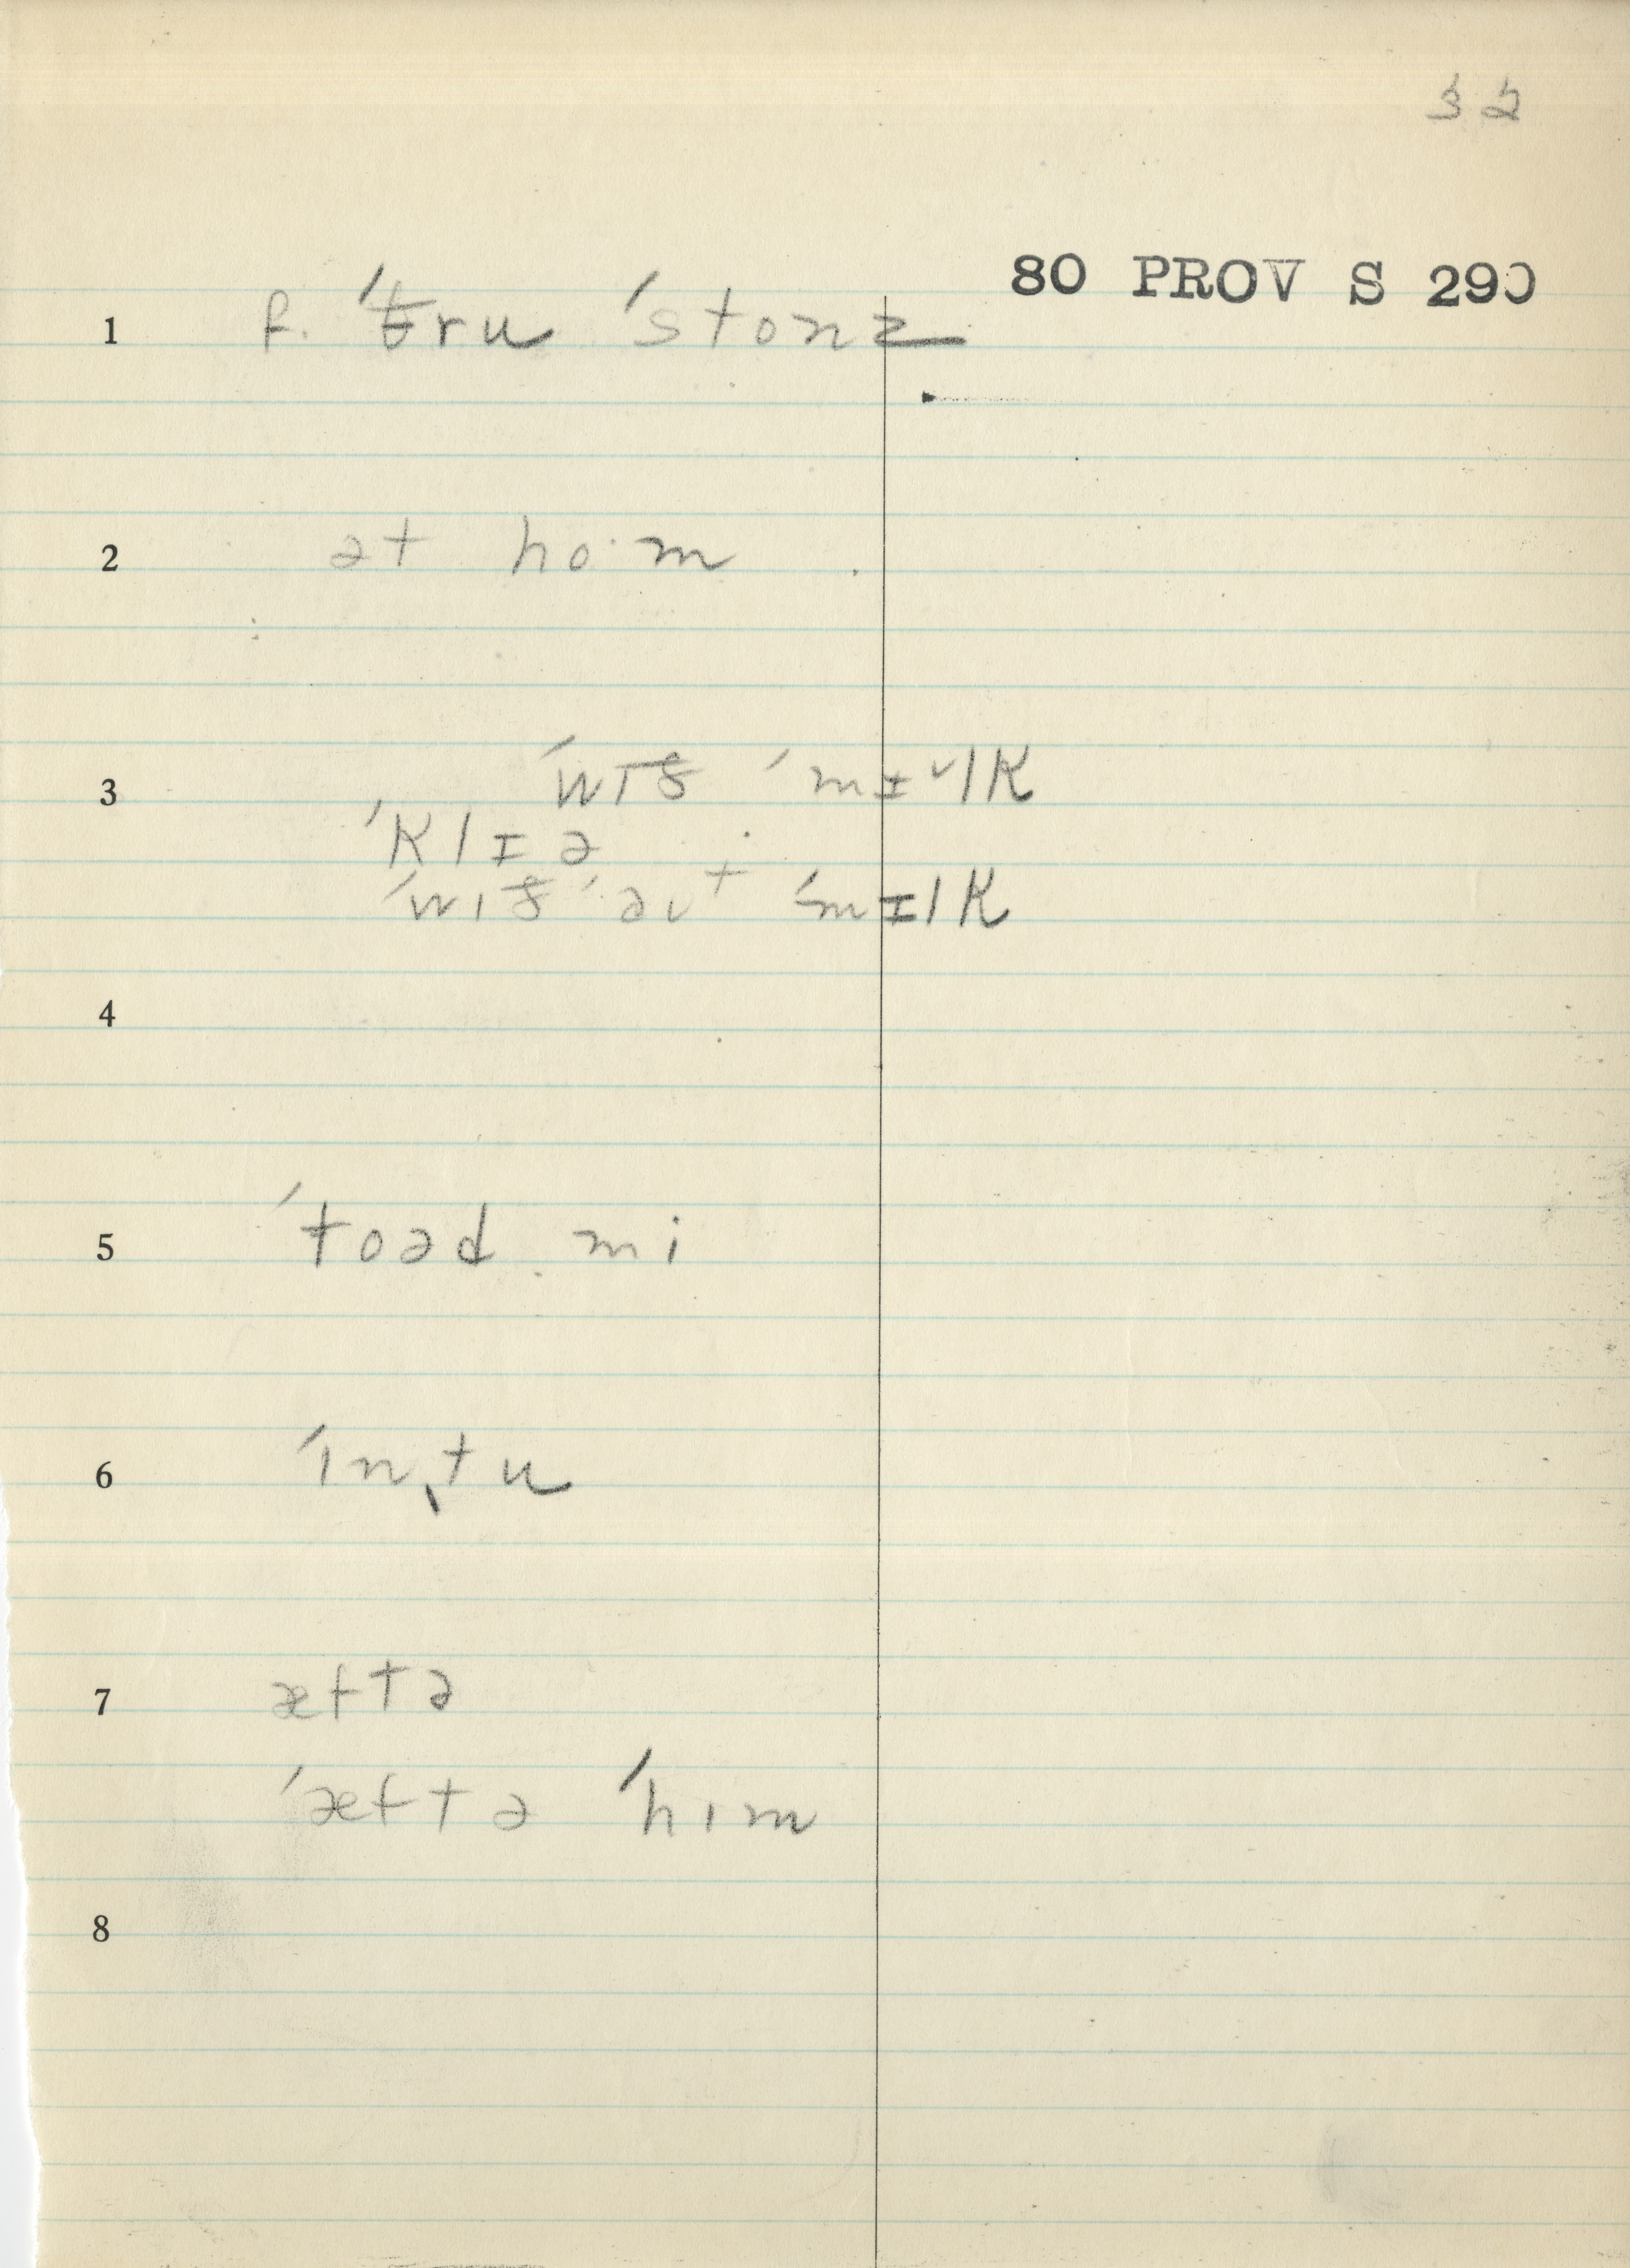 32
80 PROV S 290
1 f. ˈθru ˈstonz
2 ət ho·m
3 ˈwɪð ˈmɪˇlk
ˈklɪə
ˈwɪð ˈəʊt ˈmɪlk
4
5 ˈtoəd mi
6 ˈɪnˌtu
7 æftə
ˈæftə ˈhɪm
8